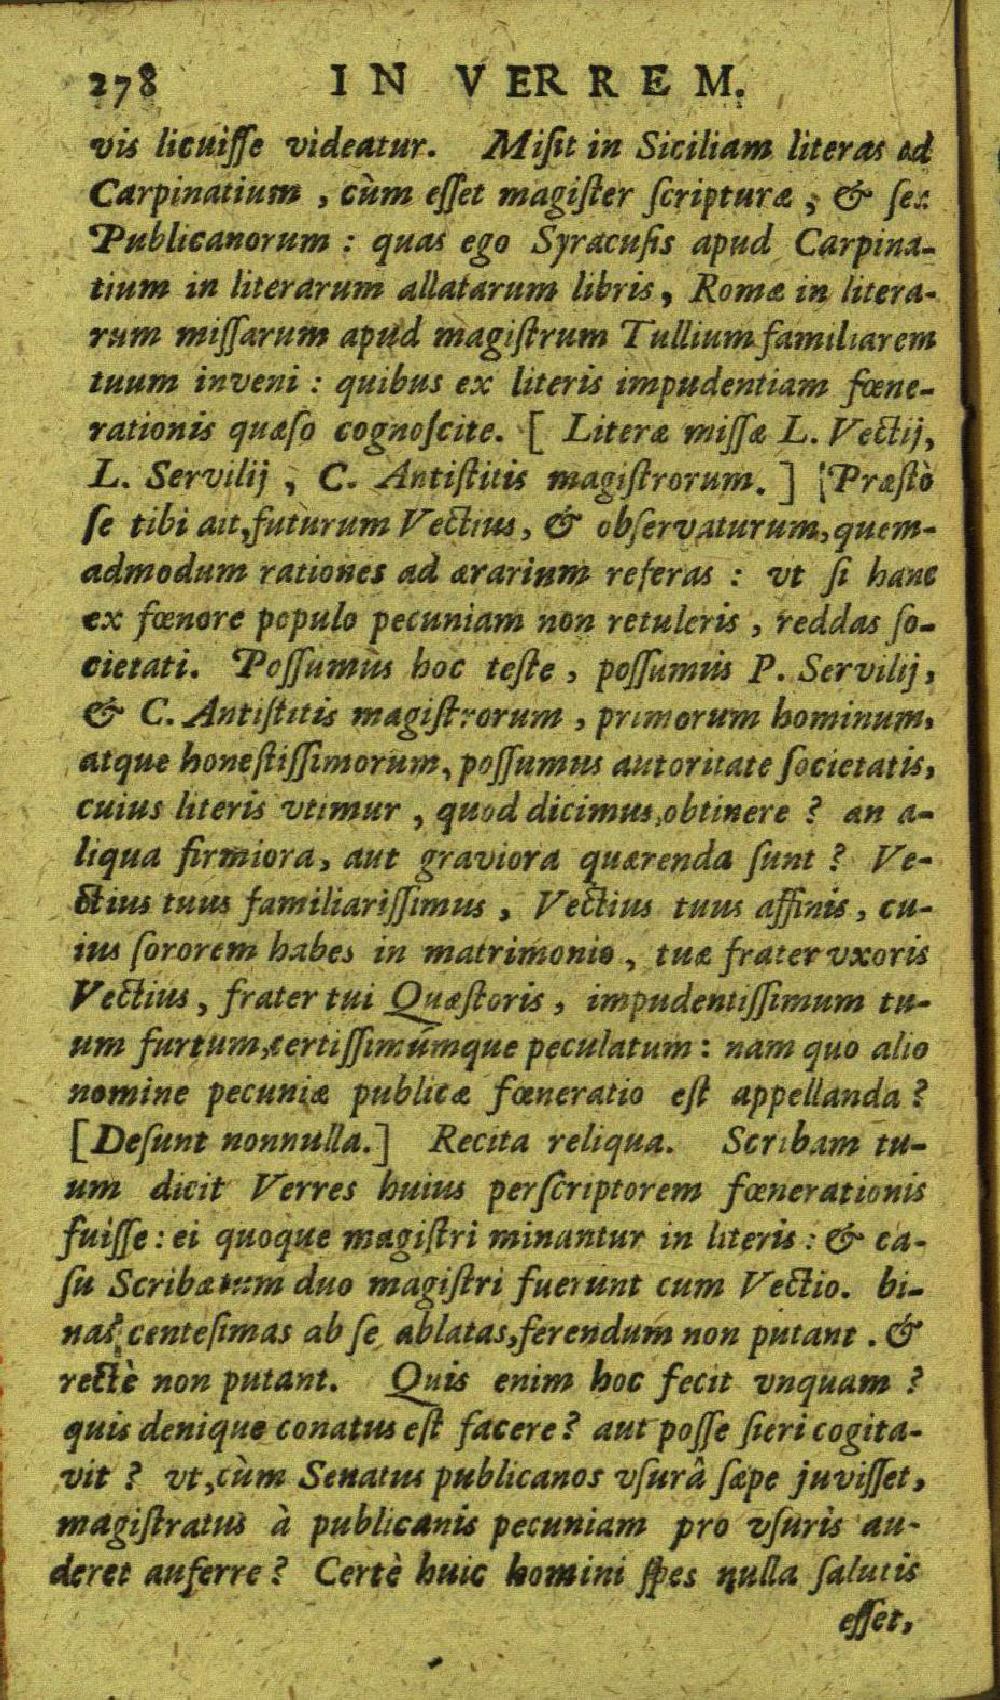 278 IN VERREM.
vis licuiſſe videatur. Miſit in Siciliam literas ad
Carpinatium, cùm eſſet magiſter ſcripturæ, & ſex
Publicanorum : quas ego Syracuſis apud Carpina-
tium in literarum allatarum libris, Romæ in litera-
rum miſſarum apud magiſtrum Tullium familiarem
tuum inveni : quibus ex literis impudentiam fœne-
rationis quæſo cognoſcite. [ Literæ miſſæ L. Vectij,
L. Servilij, C. Antiſtitis magiſtrorum. ] Præſtò
ſe tibi ait, futurum Vectius, & obſervaturum, quem-
admodum rationes ad ærarium referas : vt ſi hanc
ex fœnore populo pecuniam non retuleris, reddas ſo-
cietati. Poſſumus hoc teſte, poſſumus P. Servilij,
& C. Antiſtitis magiſtrorum, primorum hominum,
atque honeſtiſſimorum, poſſumus autoritate ſocietatis,
cuius literis vtimur, quod dicimus, obtinere ? an a-
liqua firmiora, aut graviora quærenda ſunt ? Ve-
ctius tuus familiariſſimus, Vectius tuus affinis, cu-
ius ſororem habes in matrimonio, tuæ frater vxoris
Vectius, frater tui Quæſtoris, impudentiſſimum tu-
um furtum, certiſſimúmque peculatum : nam quo alio
nomine pecuniæ publicæ fœneratio eſt appellanda ?
[Deſunt nonnulla.] Recita reliqua. Scribam tu-
um dicit Verres huius perſcriptorem fœnerationis
fuiſſe : ei quoque magiſtri minantur in literis : & ca-
ſu Scribarum duo magiſtri fuerunt cum Vectio. bi-
nas centeſimas ab ſe ablatas, ferendum non putant. &
rectè non putant. Quis enim hoc fecit vnquam ?
quis denique conatus eſt facere ? aut poſſe fieri cogita-
vit ? vt, cùm Senatus publicanos vſurâ ſæpe juviſſet,
magiſtratus à publicanis pecuniam pro vſuris au-
deret auferre ? Certè huic homini ſpes nulla ſalutis
eſſet,